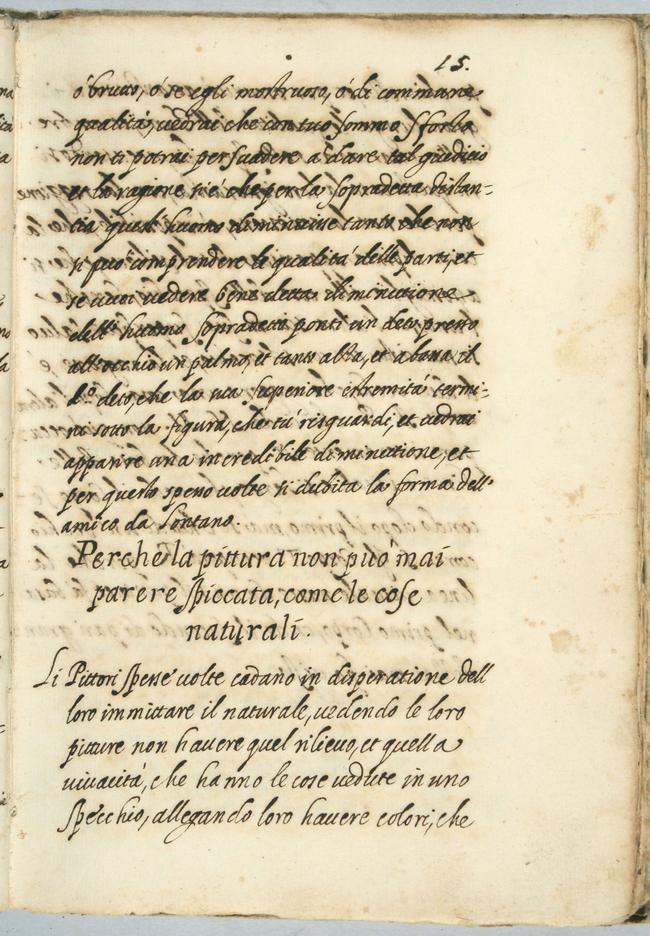 15.
ó brutto, ó se egli mostruoso, ó di commune
qualitá, vedrai che con tuo sommo sforzo
non ti potrai persuadere a dare tal giudicio
et la ragione si é che per la sopradetta distan=
tia quest' huomo diminuisce tanto che non
si puo comprendere le qualitá delle parti, et
se vuoi vedere bene detta diminutione
dell' huomo sopradetto ponti un deto presso
all' occhio un palmo, et tanto alza, et abassa il
d.º deto, che la sua superiore estremitá termi=
ni sotto la figura, che tú risguardi, et vedrai
apparire una incredibile diminutione, et
per questo spesso volte si dubita la forma dell'
amico da lontano.
Perche la pittura non puó mai
parere spiccata, come le cose
naturali.
Li Pittori spesse volte cadano in disperatione dell
loro immittare il naturale, vedendo le loro
pitture non havere quel rilievo, et quella
vivacitá, che hanno le cose vedute in uno
specchio, allegando loro havere colori, che